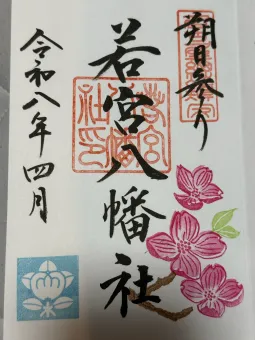 朔日参り
若宮八幡社
令和八年四月